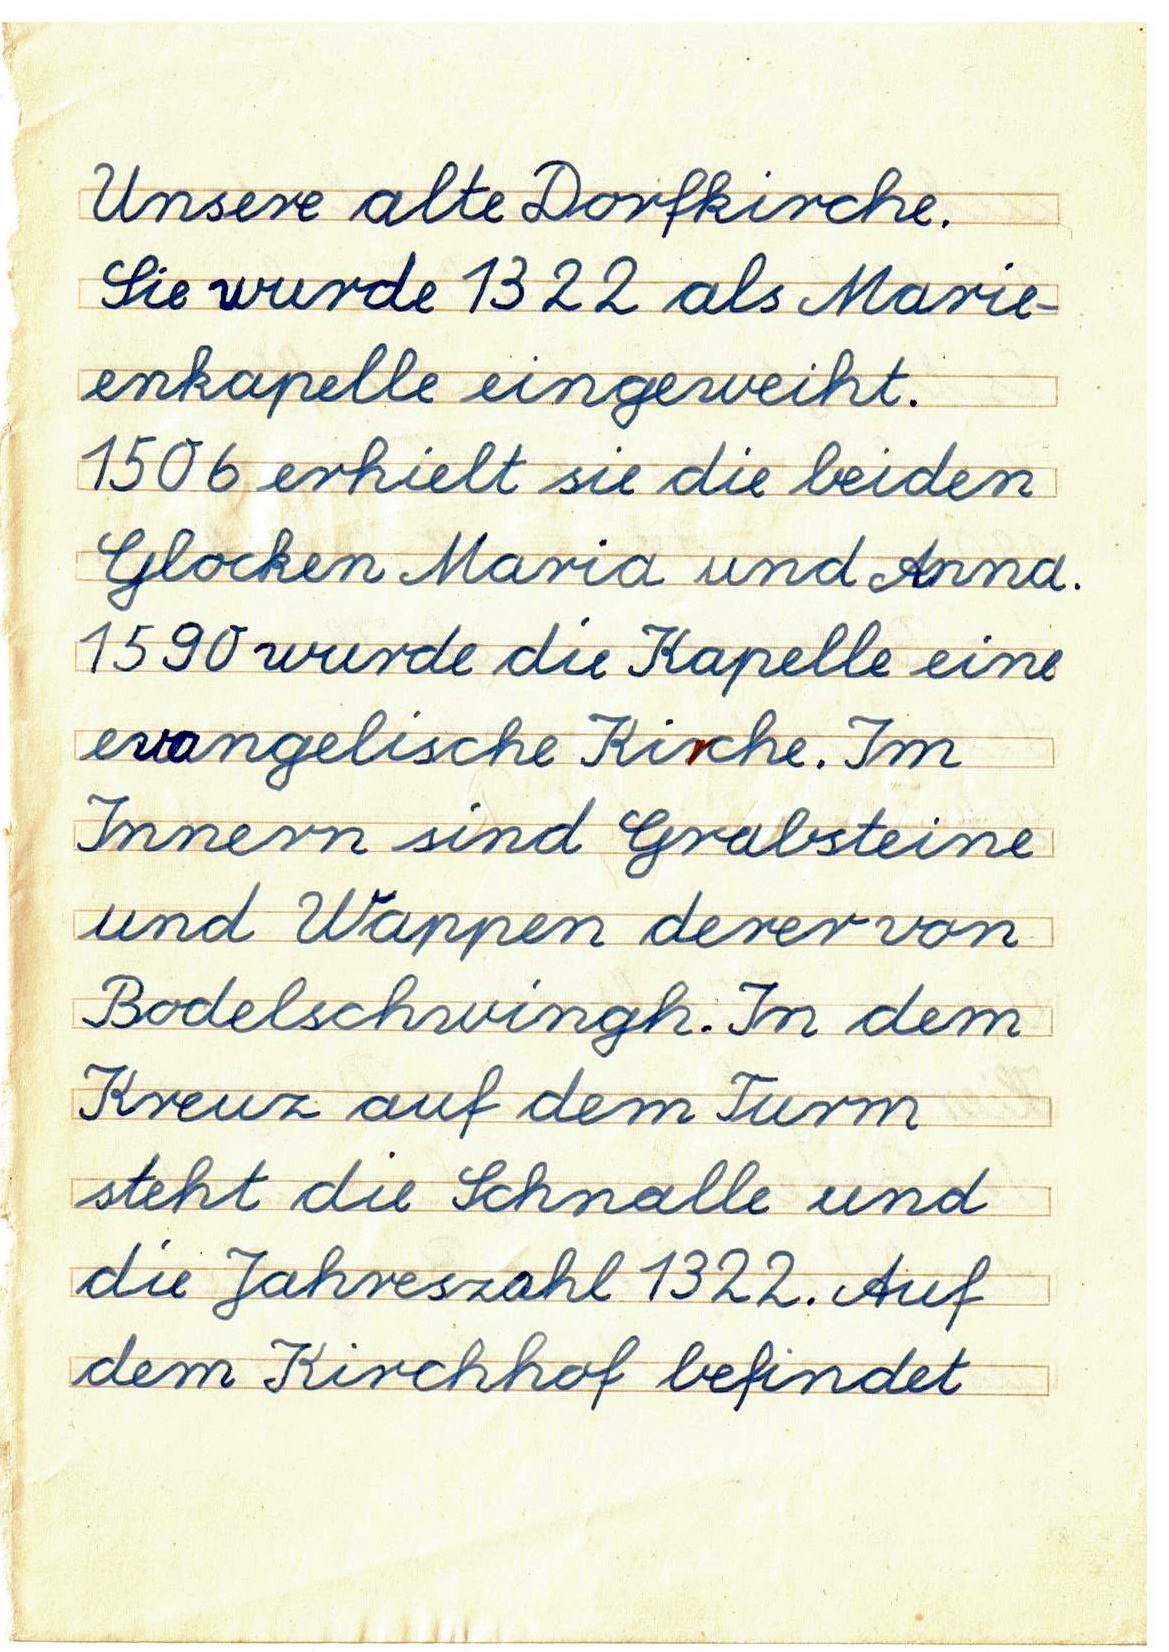 Unsere alte Dorfkirche.
Sie wurde 1322 als Marie-
enkapelle eingeweiht.
1506 erhielt sie die beiden
Glocken Maria und Anna.
1590 wurde die Kapelle eine
evangelische Kirche. Im
Innern sind Grabsteine
und Wappen derer von
Bodelschwingh. In dem
Kreuz auf dem Turm
steht die Schnalle und
die Jahreszahl 1322. Auf
dem Kirchhof befindet